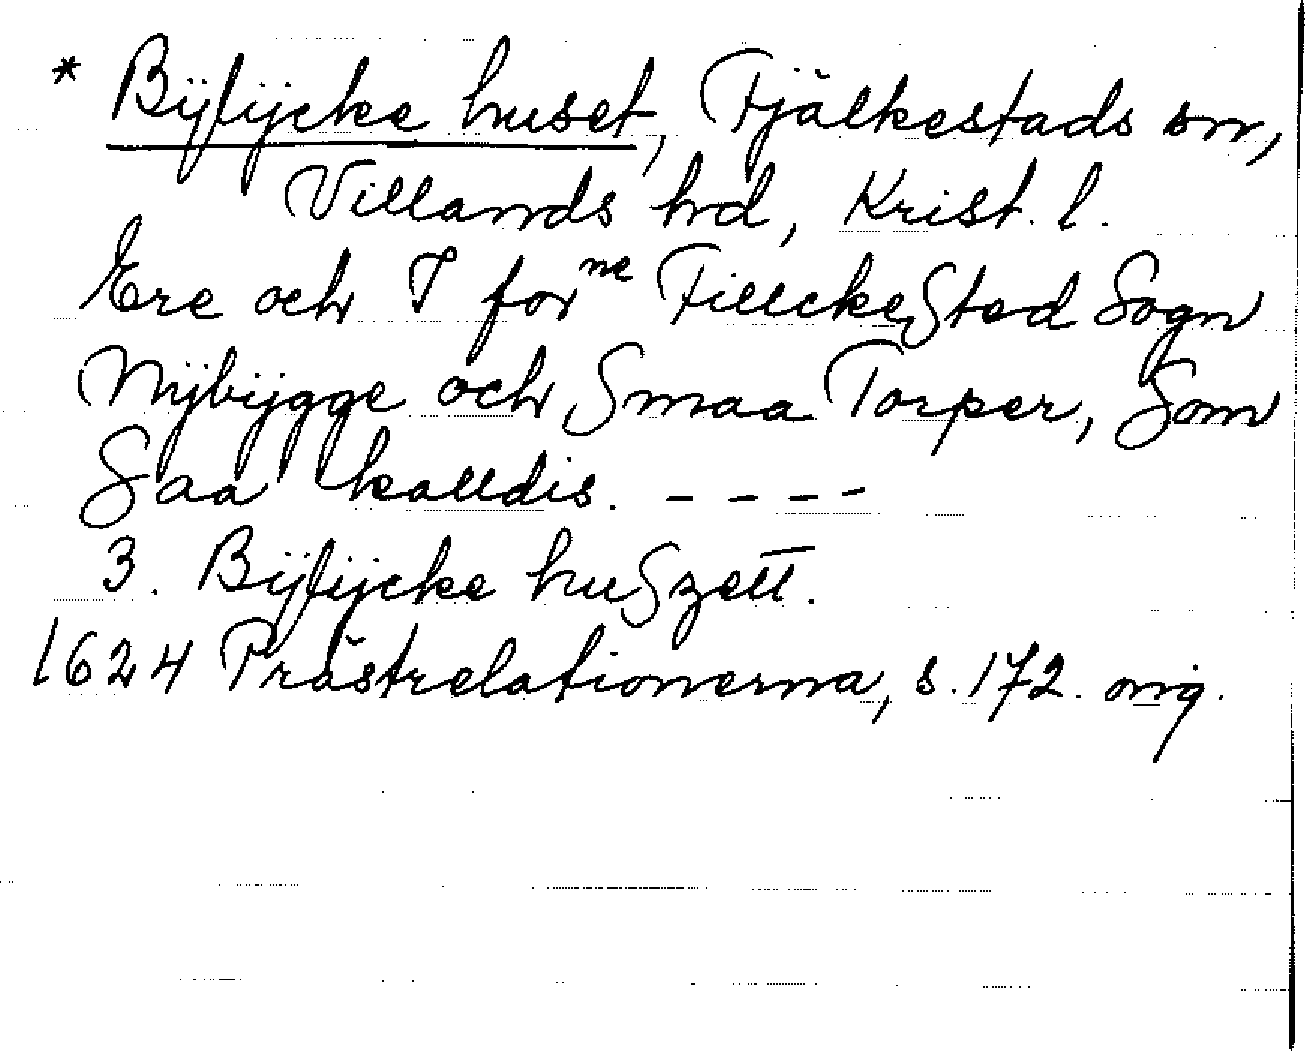 * Bÿlÿcke huset, Fjälkestads sn,
Villands hd, Krist. l.
Ere och I for ne Fillckested Sogn
Nÿbÿgge och Smaa Torper, Som
Saa kalldis. - - - -
3. Bÿlÿcke huszett.
1624 Prästrelationerna, s. 172. orig.